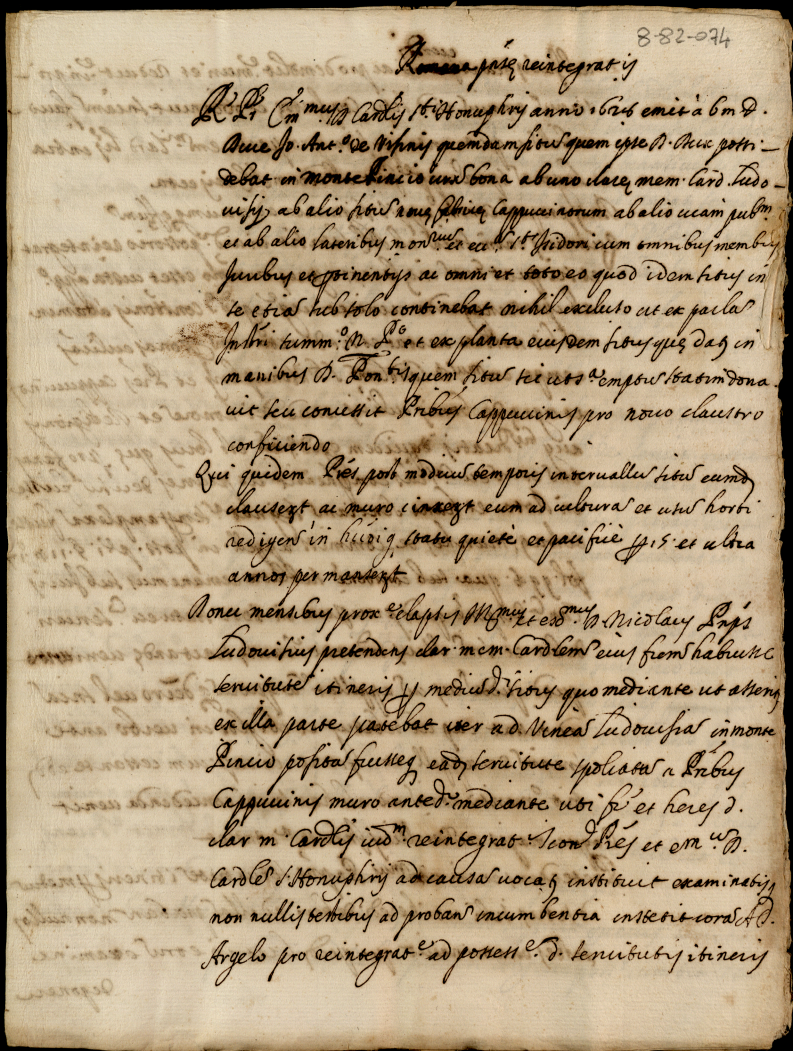 8-82-074
Romana ptsę reintegratis
Rs Ps Emmus D Cardlis Sti Honuphrij anno 1626 emit à bm d.
Duce Jo. Anto. de Visinis quemdam situs quem ipse D. Dux possi-
debat in monte Pincio iuxa bona ab uno clarę mem. Card. Ludo-
visij, ab alio situs nouę fabricę Cappuccinorum ab alio uiam pubm
et ab alio lateribus monrus et ecc Sti Isidori cum omnibus membris
Juribus et ptinentijs ac omni et toto eo quod idem situs in
se etia sub solo continebat nihil excluso ut ex paila
Instri summo N. Po et ex planta eiusdem situs quę datę in
manibus D. Pontis quem situ sic uts a emptu statim dona-
uit seu concessit Pribus Cappuccinis pro nouo claustro
conficiendo
Qui quidem Pres post modicu temporis interuallu situ eumd
clauserut ac muro cinxerut eum ad cultura et usu horti
redigens in huiq statu quietè et pacificè p 15 et ultra
annos permanserut
Donec mensibus proxe elapsis Illmus et exmus D. Nicolaus Pnps
Ludouisius pretendens clar. mem. Cardlem eius frem habuisse
seruitute itineris p mediu d. situs quo mediante ut asserit
ex illa parte patebat iter ad Vinea Ludouisia in monte
Pincio posita fuisseq ead seruitute spoliata a Pribus
Cappuccinis muro anted. mediante uti fr et heres d.
clar m. Cardlis iudm reintegrat con Pres et emus D.
Cardle S. Honuphrij ad causa uocat instituit examinatisq
non nullis testibus ad proban incumbentia institit cora A d.
Argelo pro reintegrate ad possesse d. seruitutis itineris